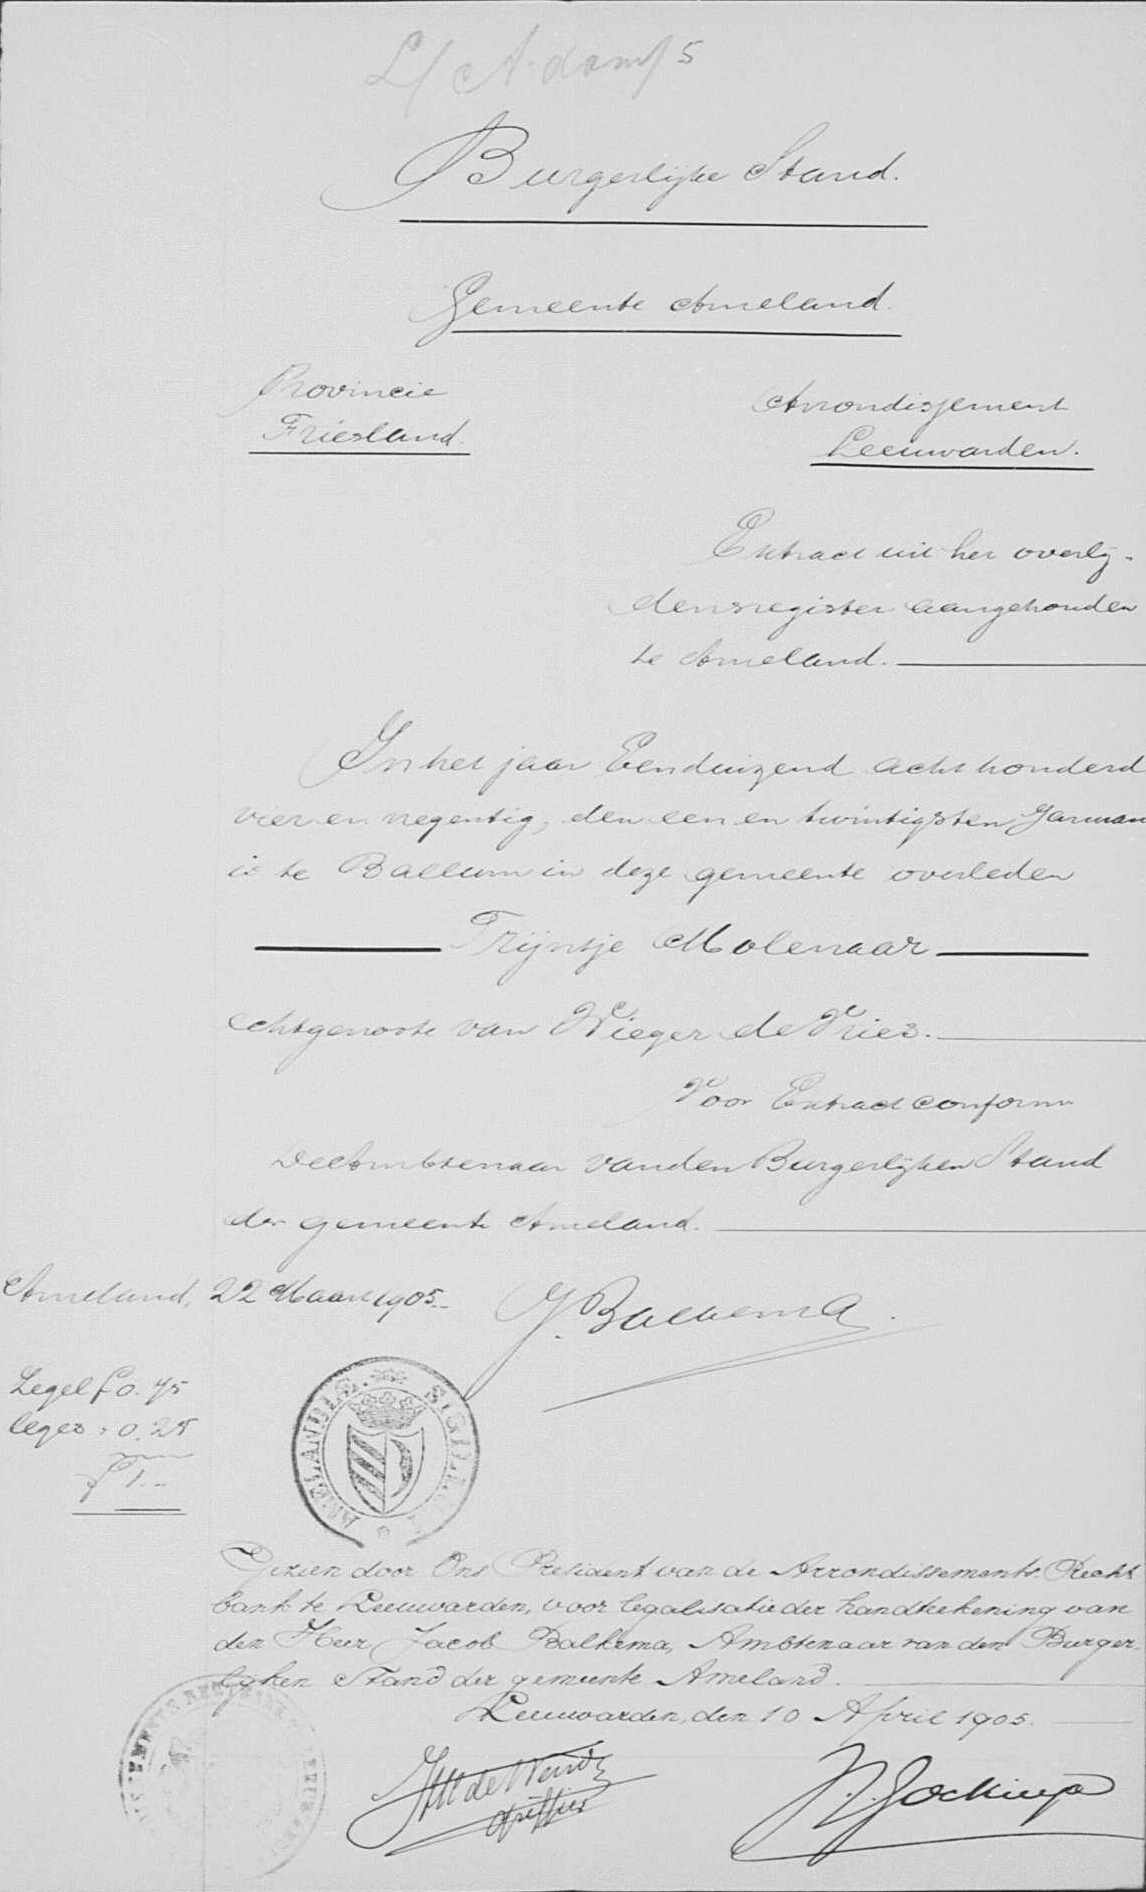 Burgerlijke Stand.
Gemeente Ameland.
Provincie
Friesland.
Arrondissement
Leeuwarden.
Extract uit het overlij-
densregister aangehouden
te Ameland.
In het jaar Eenduizend achthonderd
vier en negentig, den een en twintigsten Januari
is te Ballum in deze gemeente overleden
Trijntje Molenaar
echtgenoote van Wieger de Vries.
Voor Extract conform
De Ambtenaar van den Burgerlijken Stand
der gemeente Ameland.
Ameland, 22 Maart 1905.
J. Balkema.
Zegel f 0.75
leges " 0.25
f 1.-
AMELANDIÆ. SIGILL
Gezien door Ons President van de Arrondissements-Recht
bank te Leeuwarden, voor legalisatie der handteekening van
den Heer Jacob Balkema, Ambtenaar van den Burger-
lijken Stand der gemeente Ameland.
Leeuwarden, den 10 April 1905.
griffier